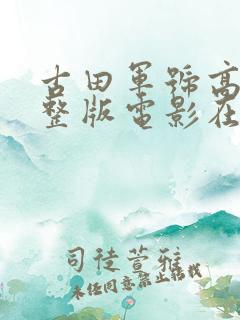 古田军号高
整版电影在
司徒萱雅
未经同意禁止转载